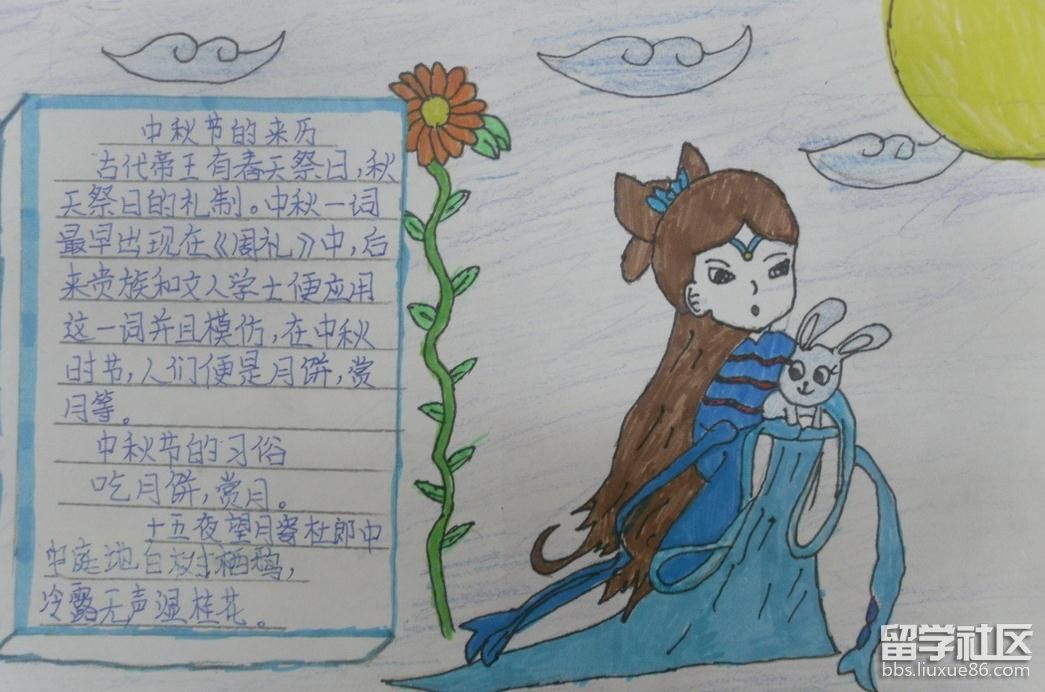 中秋节的来历
古代帝王有春天祭日,秋
天祭日的礼制。中秋一词
最早出现在《周礼》中,后
来贵族和文人学士便应用
这一词并且模仿,在中秋
时节,人们便是月饼,赏
月等。
中秋节的习俗
吃月饼,赏月。
十五夜望月寄杜郎中
中庭地白树栖鸦,
冷露无声湿桂花。
留学社区
bbs.liuxue86.com